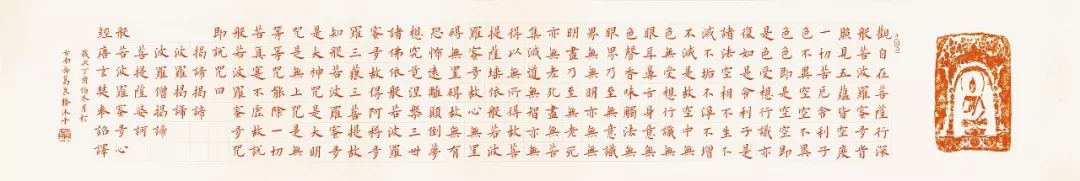 觀自在菩薩行深
般若波羅蜜多時
照見五蘊皆空度
一切苦厄舍利子
色不異空空不異
色色即是空空即
是色受想行識亦
復如是舍利子是
諸法空相不生不
滅不垢不淨不增
不減是故空中無
色無受想行識無
眼耳鼻舌身意無
色聲香味觸法無
眼界乃至無意識
界無無明亦無無
明盡乃至無老死
亦無老死盡無苦
集滅道無智亦無
得以無所得故菩
提薩埵依般若波
羅蜜多故心無罣
礙無罣礙故無有
恐怖遠離顛倒夢
想究竟涅槃三世
諸佛依般若波羅
蜜多故得阿耨多
羅三藐三菩提故
知般若波羅蜜多
是大神咒是大明
咒是無上咒是無
等等咒能除一切
苦真實不虛故說
般若波羅蜜多咒
即說咒曰
揭諦揭諦
波羅揭諦
波羅僧揭諦
菩提薩婆訶
般若波羅蜜多心
經唐玄奘奉詔譯
歲次丁酉冬月於
古南岳葛良勝沐手